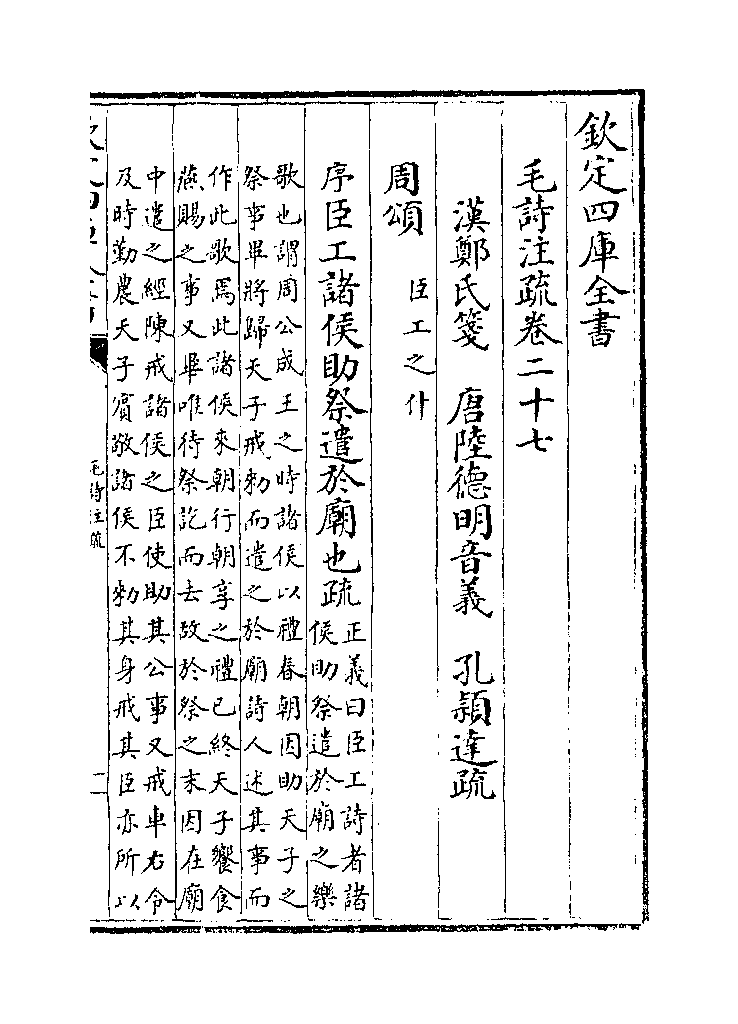 欽定四庫全書
毛詩注疏卷二十七
漢鄭氏箋　唐陸德明音義　孔穎達疏
周頌　臣工之什
序臣工諸侯助祭遣於廟也疏
正義曰臣工詩者諸
侯助祭遣於廟之樂
歌也謂周公成王之時諸侯以禮春朝因助天子之
祭事畢將歸天子戒勅而遣之於廟詩人述其事而
作此歌焉此諸侯來朝行朝享之禮已終天子饗食
燕賜之事又畢唯待祭訖而去故於祭之末因在廟
中遣之經陳戒諸侯之臣使助其公事又戒車右令
及時勤農天子賓敬諸侯不勅其身戒其臣亦所以
毛詩注疏